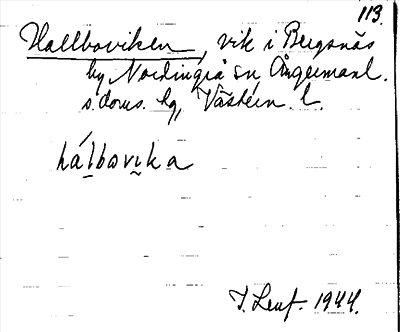 113.
Hallboviken, vik i Bergsnäs
by Nordingrå sn, Ångermanl.
s. doms. hg, Västern. l.
hálbovika
J. Leuf. 1944.